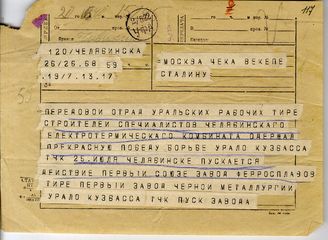 117
120/ЧЕЛЯБИНСКА
26/26.68 59
19/7.13.17
=МОСКВА ЧЕКА ВЕКЕПЕ
СТАЛИНУ=
ПЕРЕДОВОЙ ОТРЯД УРАЛЬСКИХ РАБОЧИХ ТИРЕ
СТРОИТЕЛЕЙ СПЕЦИАЛИСТОВ ЧЕЛЯБИНСКОГО
ЕЛЕКТОТЕРМИЧЕСКОГО КОМБИНАТА ОДЕРЖАЛ
ПРЕКРАСНУЮ ПОБЕДУ БОРЬБЕ УРАЛО КУЗБАССА
ТЧК 25 ИЮЛЯ ЧЕЛЯБИНСКЕ ПУСКАЕТСЯ
ДЕЙСТВИЕ ПЕРВЫЙ СОЮЗЕ ЗАВОД ФЕРРОСПЛАВОВ
ТИРЕ ПЕРВЫЙ ЗАВОД ЧЕРНОЙ МЕТАЛЛУРГИИ
УРАЛО КУЗБАССА ТЧК ПУСК ЗАВОДА